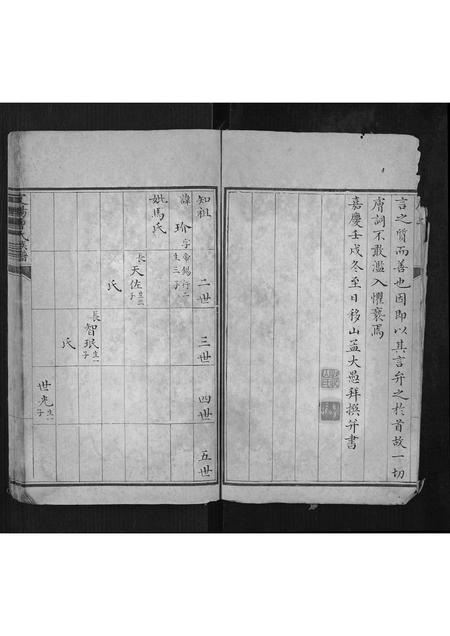 言之質而善也因即以其言弁之於首故一切
膚詞不敢濫入懼褻焉
嘉慶壬戌冬至日移山孟大愚拜撰并書
知祖 二世 三世 四世 五世
諱珍字帝錫行二生三子
妣馬氏
長天佐生二子
氏
長智珢生一子
氏
世光生一子